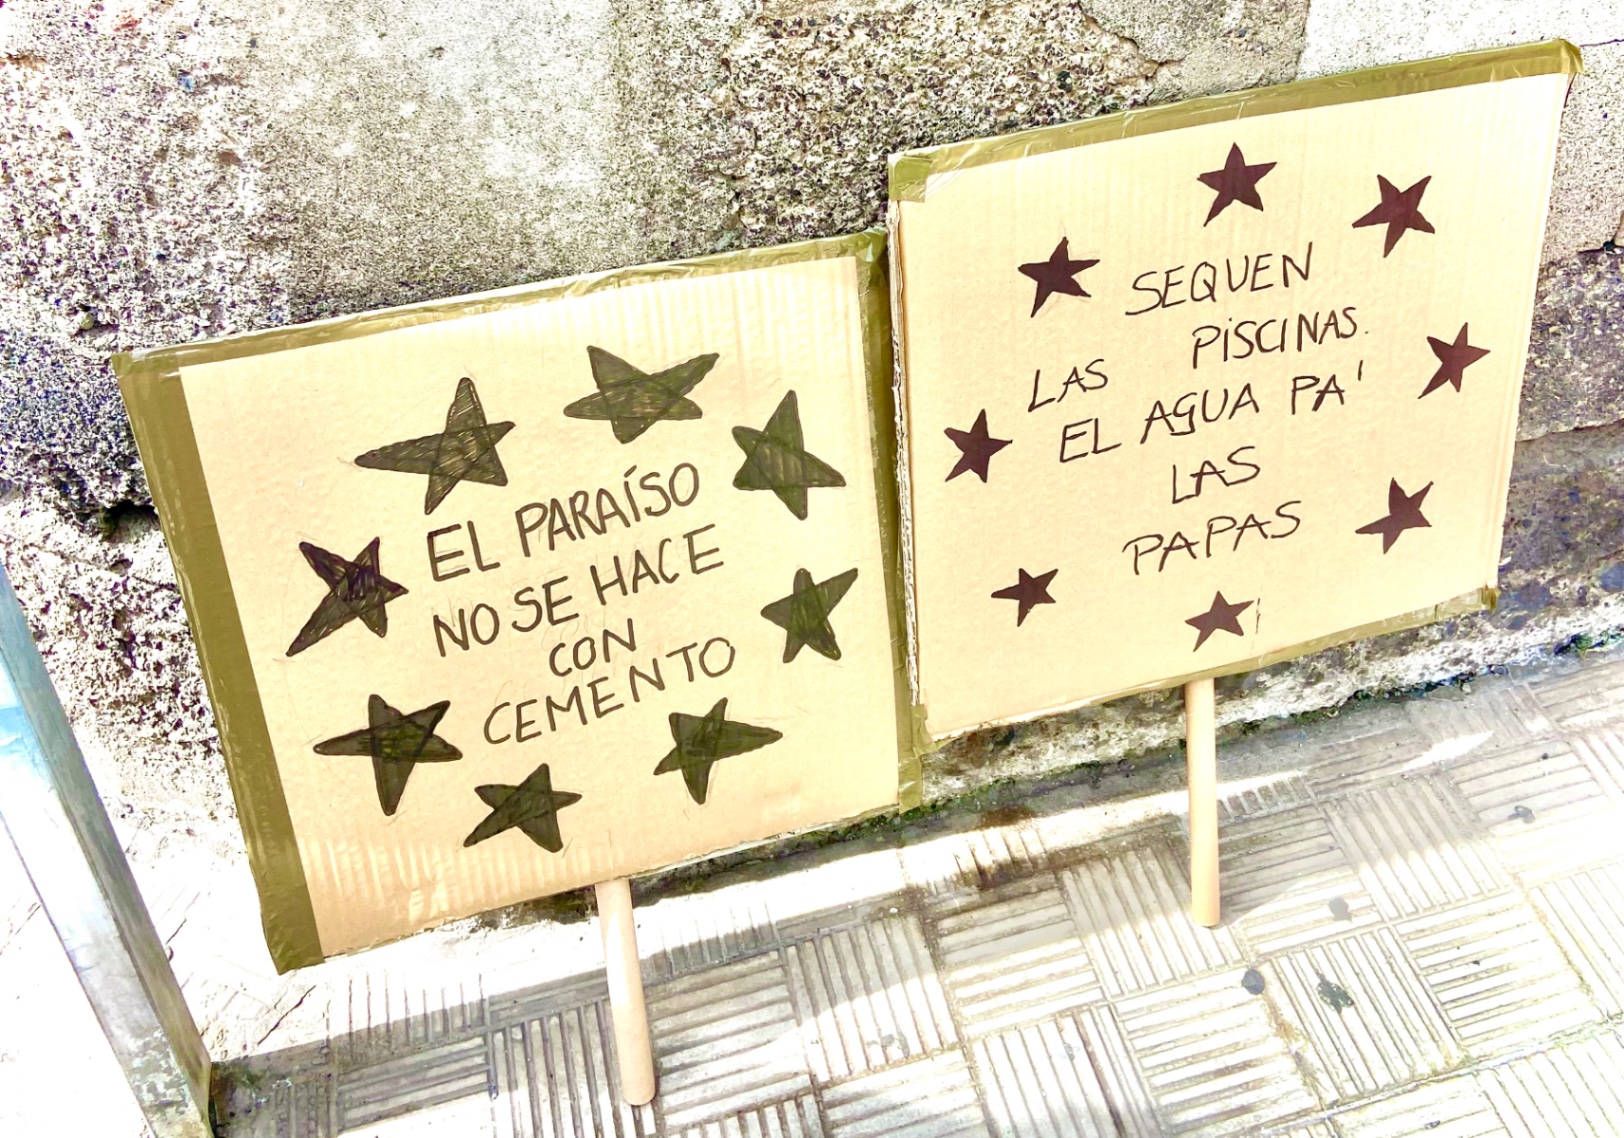 EL PARAÍSO
NO SE HACE
CON
CEMENTO
SEQUEN
LAS PISCINAS.
EL AGUA PA'
LAS
PAPAS